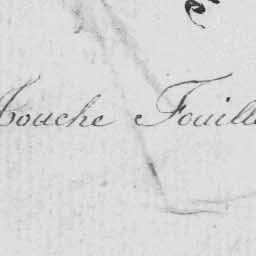 Mouche Fouill